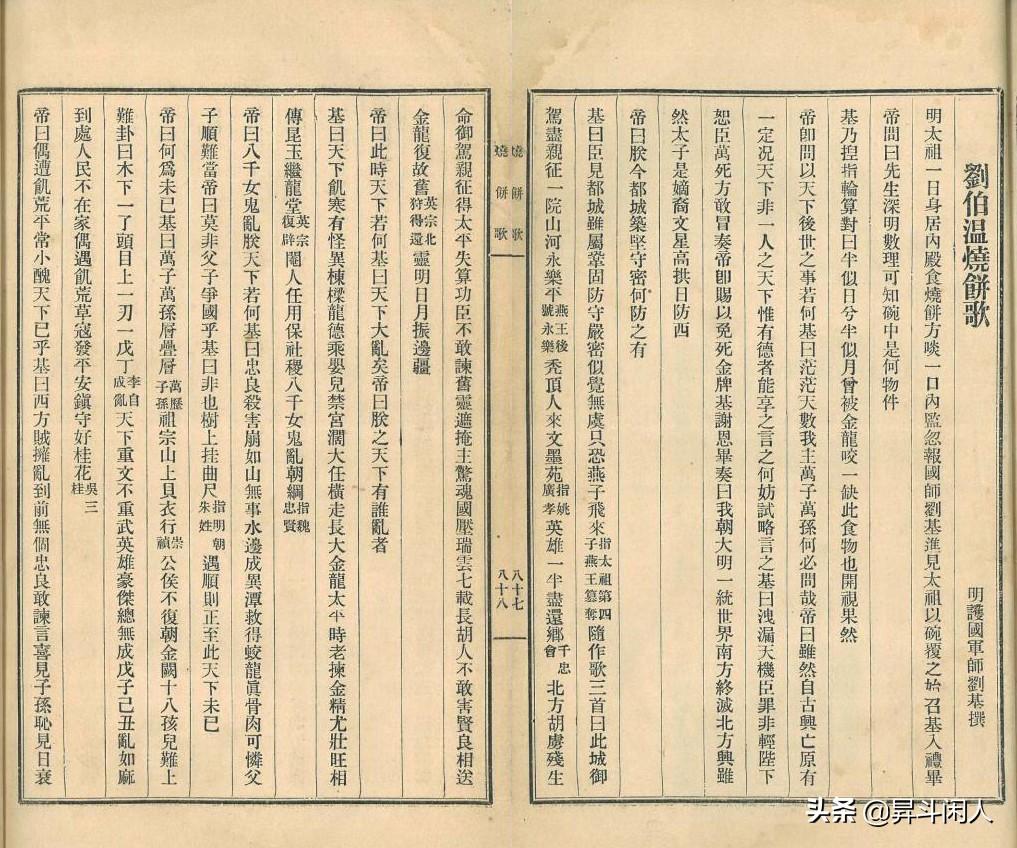 劉伯温燒餅歌
明護國軍師劉基撰
明太祖一日身居內殿食燒餅方啖一口內監忽報國師劉基進見太祖以碗覆之始召基入禮畢
帝問曰先生深明數理可知碗中是何物件
基乃揑指輪算對曰半似日兮半似月曾被金龍咬一缺此食物也開視果然
帝卽問以天下後世之事若何基曰茫茫天數我主萬子萬孫何必問哉帝曰雖然自古興亡原有
一定况天下非一人之天下惟有德者能享之言之何妨試略言之基曰洩漏天機臣罪非輕陛下
恕臣萬死方敢冒奏帝卽賜以免死金牌基謝恩畢奏曰我朝大明一統世界南方終滅北方興雖
然太子是嫡裔文星高拱日防西
帝曰朕今都城築堅守密何防之有
基曰臣見都城雖屬鞏固防守嚴密似覺無虞只恐燕子飛來指太祖第四子燕王篡奪隨作歌三首曰此城御
駕盡親征一院山河永樂平燕王後號永樂禿頂人來文墨苑指姚廣孝英雄一半盡還鄉千忠會北方胡虜殘生
燒餅歌
八十七
燒餅歌
八十八
命御駕親征得太平失算功臣不敢諫舊靈遮掩主驚魂國壓瑞雲七載長胡人不敢害賢良相送
金龍復故舊英宗北狩得還靈明日月振邊疆
帝曰此時天下若何基曰天下大亂矣帝曰朕之天下有誰亂者
基曰天下飢寒有怪異棟樑龍德乘嬰兒禁宮濶大任橫走長大金龍太平時老揀金精尤壯旺相
傳昆玉繼龍堂英宗復辟閹人任用保社稷八千女鬼亂朝綱指魏忠賢
帝曰八千女鬼亂朕天下若何基曰忠良殺害崩如山無事水邊成異潭救得蛟龍眞骨肉可憐父
子順難當帝曰莫非父子爭國乎基曰非也樹上挂曲尺指明朝朱姓遇順則正至此天下未已
帝曰何爲未已基曰萬子萬孫層疊層萬歷子孫祖宗山上貝衣行崇禎公侯不復朝金闕十八孩兒難上
難卦曰木下一了頭目上一刃一戊丁李自成亂天下重文不重武英雄豪傑總無成戊子己丑亂如麻
到處人民不在家偶遇飢荒草寇發平安鎭守好桂花吳三桂
帝曰偶遭飢荒平常小醜天下已乎基曰西方賊擁亂到前無個忠良敢諫言喜見子孫恥見日衰
头条 @昇斗闲人